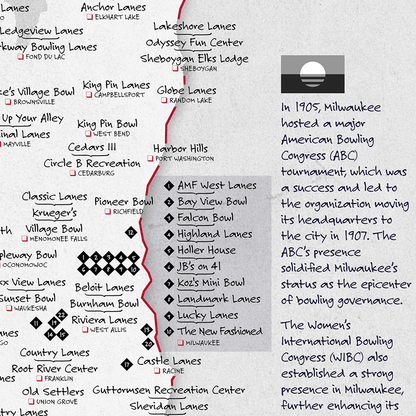 Lanes
Anchor Lanes
ELKHART LAKE
Ledgeview Lanes
Lakeshore Lanes
Parkway Bowling Lanes
FOND DU LAC
Odyssey Fun Center
Sheboygan Elks Lodge
SHEBOYGAN
King Pin Lanes
CAMPBELLSPORT
Globe Lanes
RANDOM LAKE
ke's Village Bowl
BROWNSVILLE
Up Your Alley
King Pin Bowl
WEST BEND
inal Lanes
MAYVILLE
Cedars III
Harbor Hills
PORT WASHINGTON
Circle B Recreation
CEDARBURG
Classic Lanes
Pioneer Bowl
RICHFIELD
Krueger's
th
Village Bowl
MENOMONEE FALLS
12
pleway Bowl
OCONOMOWOC
1 AMF West Lanes
2 Bay View Bowl
3 Falcon Bowl
4 Highland Lanes
5 Holler House
6 JB's on 41
7 Koz's Mini Bowl
8 Landmark Lanes
9 Lucky Lanes
10 The New Fashioned
MILWAUKEE
xx View Lanes
Beloit Lanes
Sunset Bowl
WAUKESHA
Burnham Bowl
Riviera Lanes
WEST ALLIS
22
11
19
13
20
anes
Country Lanes
17
Castle Lanes
RACINE
Root River Center
FRANKLIN
Old Settlers
UNION GROVE
Guttormsen Recreation Center
Sheridan Lanes
In 1905, Milwaukee
hosted a major
American Bowling
Congress (ABC)
tournament, which was
a success and led to
the organization moving
its headquarters to
the city in 1907. The
ABC's presence
solidified Milwaukee's
status as the epicenter
of bowling governance.
The Women's
International Bowling
Congress (WIBC) also
established a strong
presence in Milwaukee,
further enhancing its